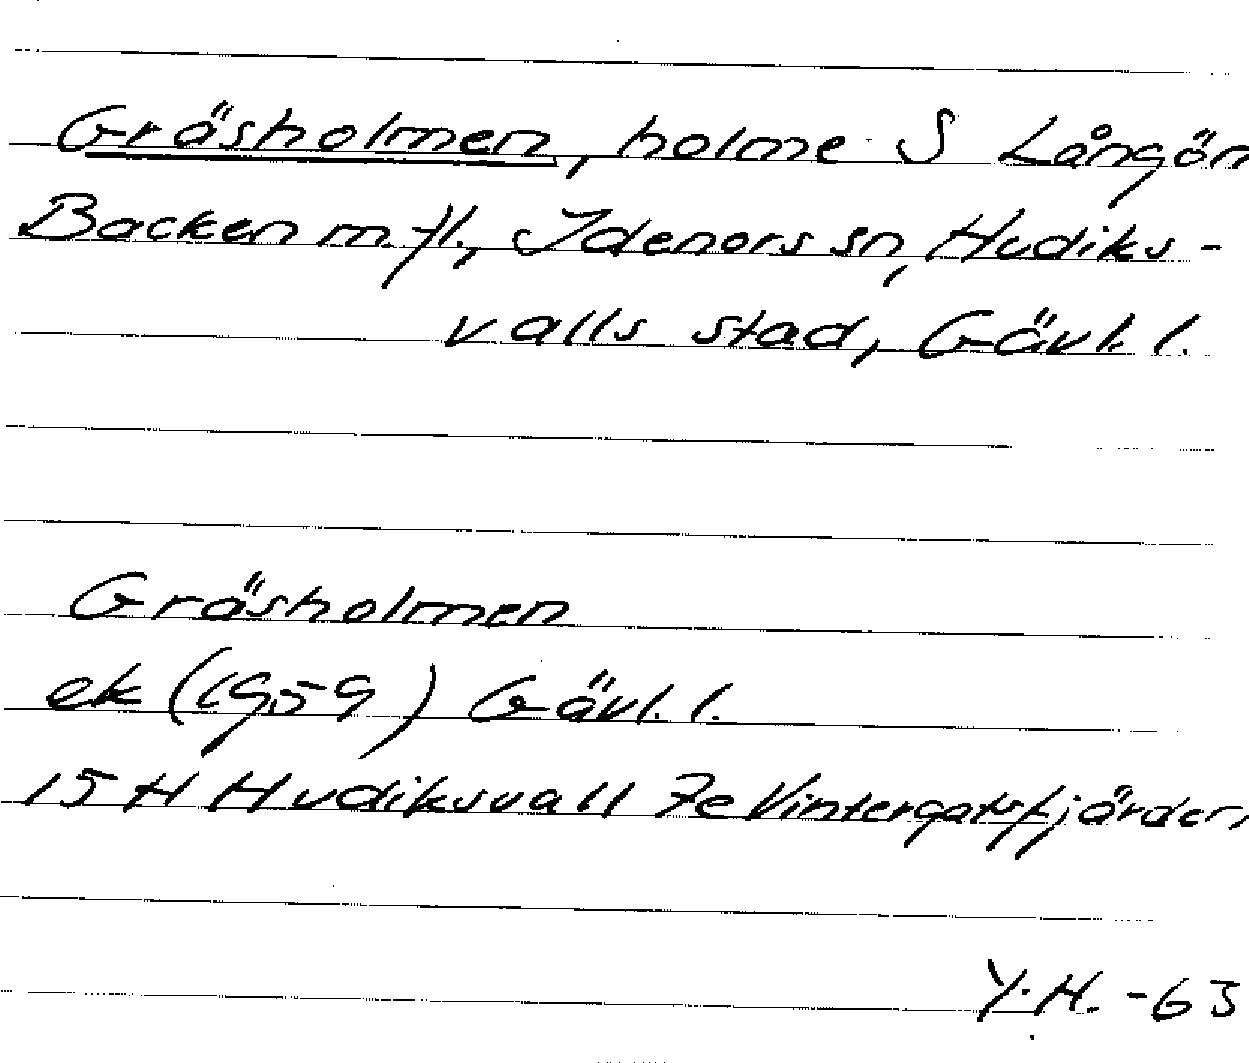 Gräsholmen, holme S Långön
Backen m.fl., Idenors sn, Hudiks-
valls stad, Gävl. l.
Gräsholmen
ek (1959) Gävl. l.
15 H Hudiksvall 7e Vintergatsfjärden
Y.H. -63